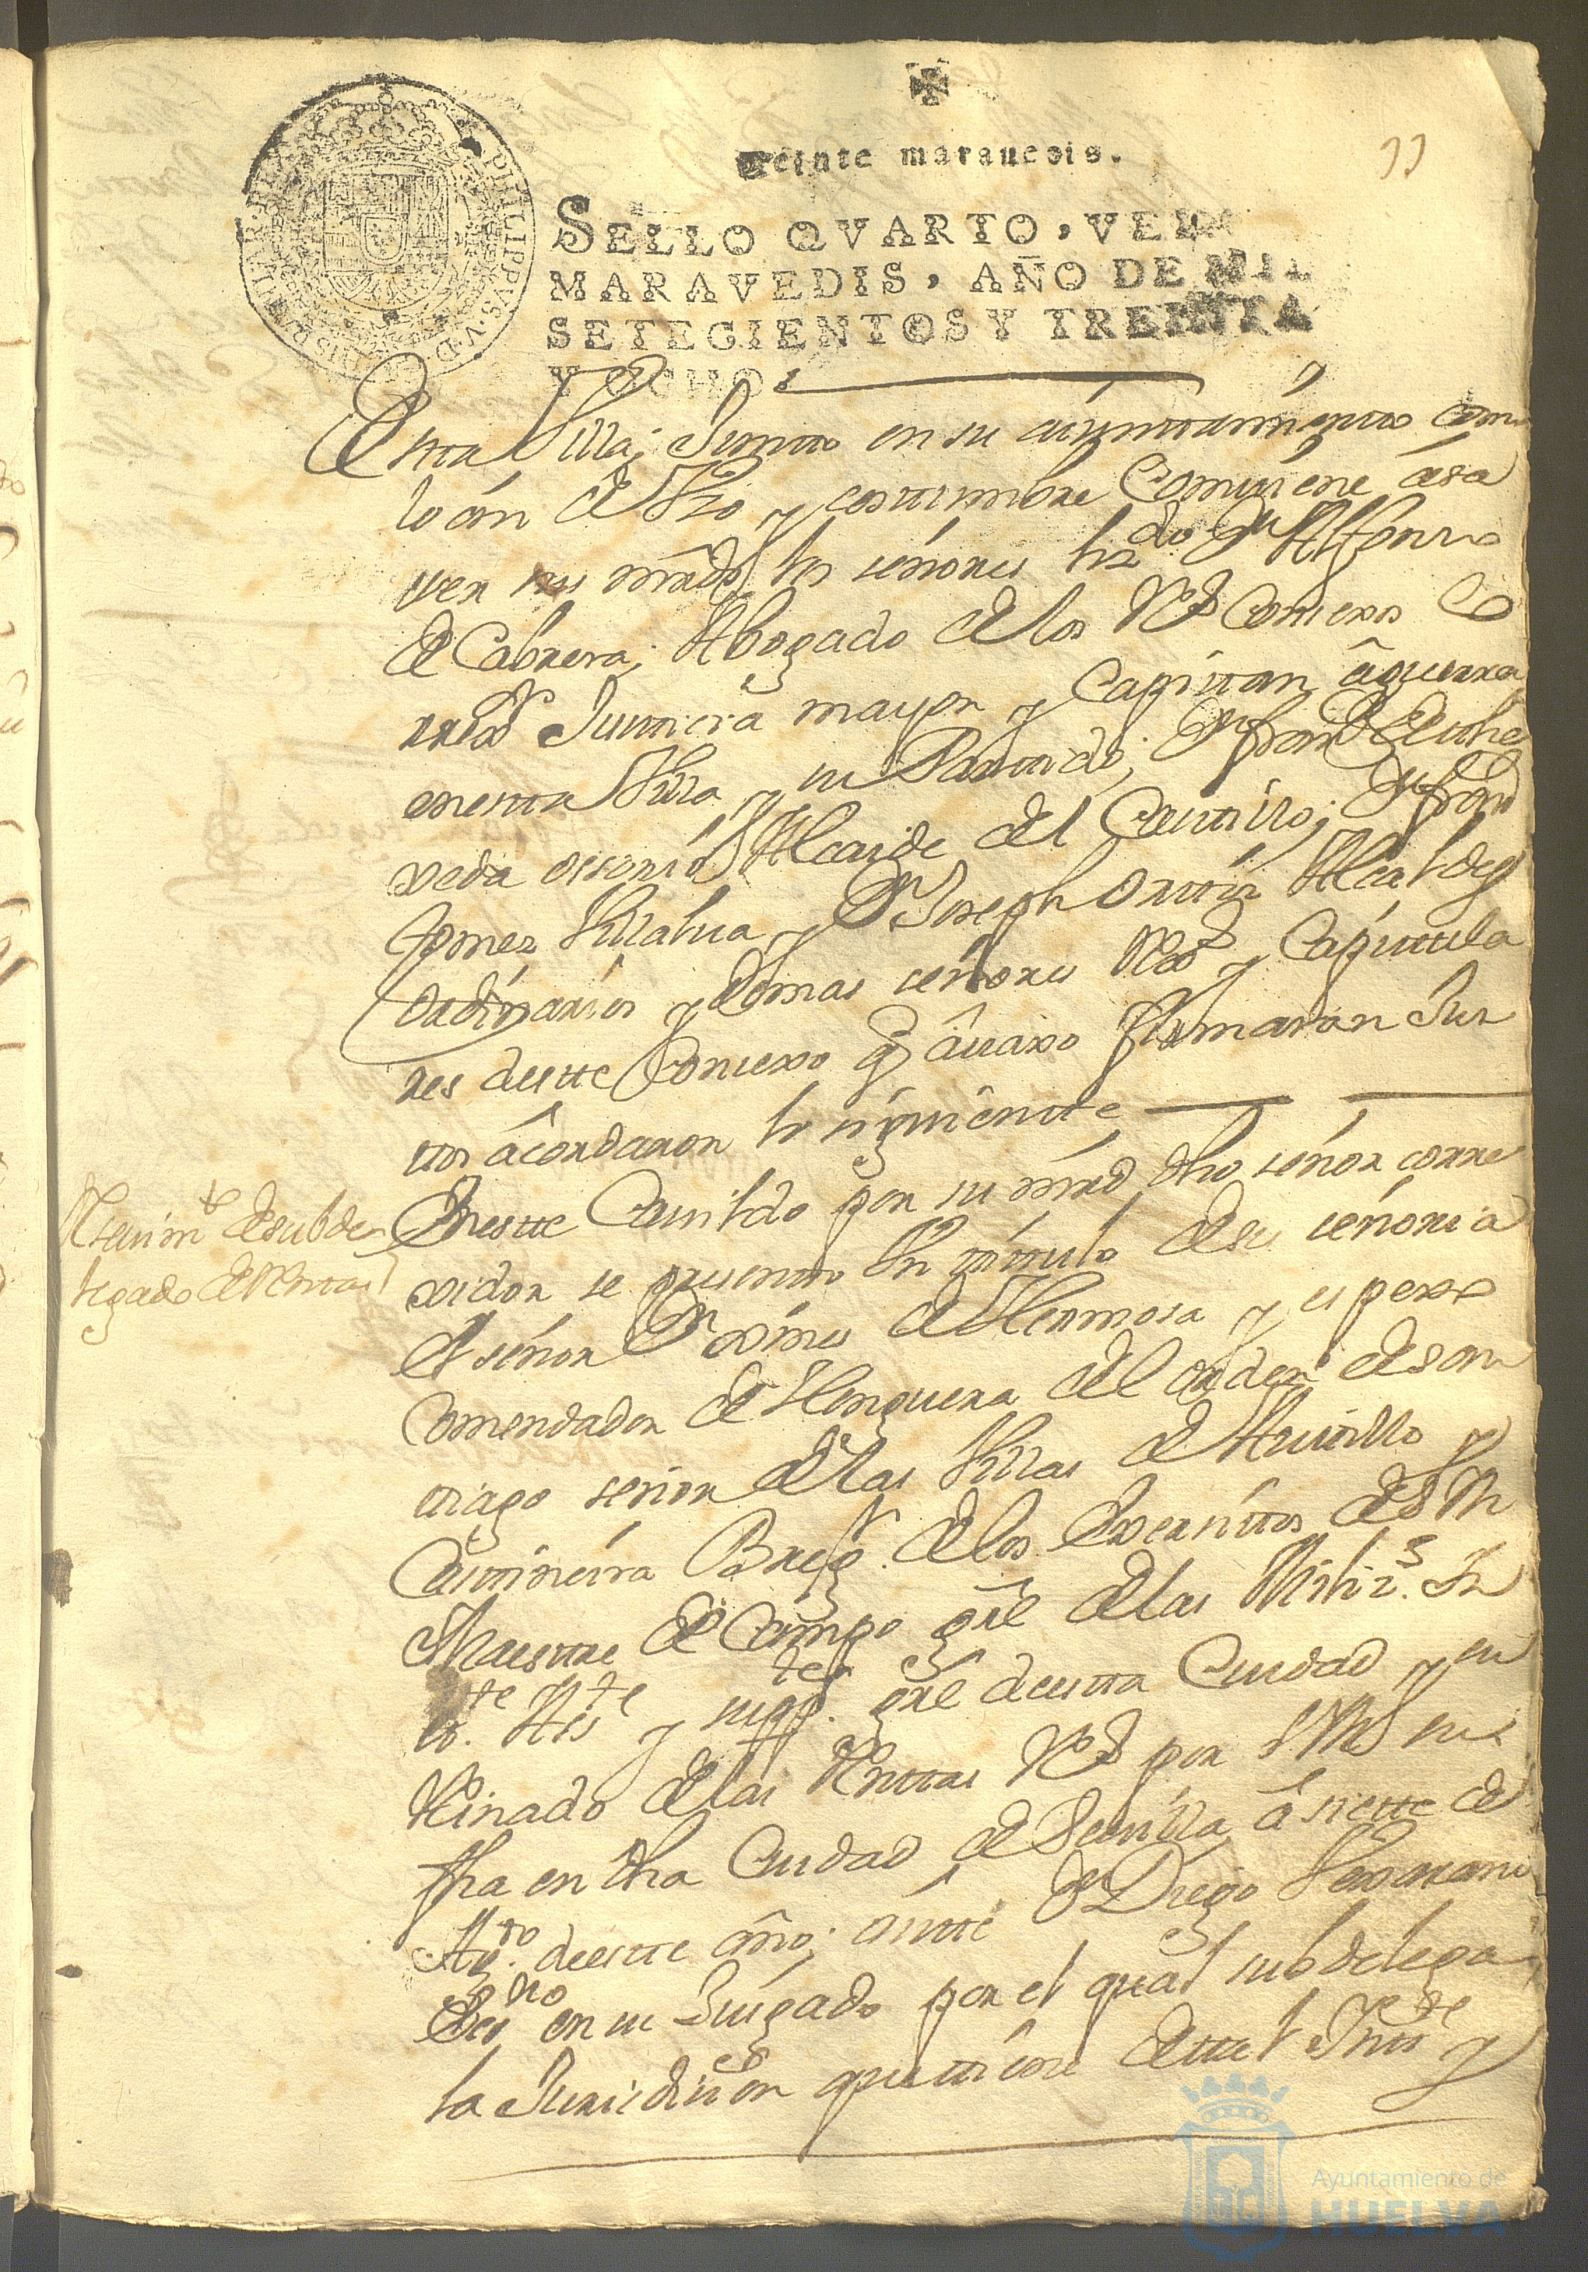 Veinte marauedis.
33
SELLO QVARTO, VEIN
MARAVEDIS, AÑO DE MIL
SETECIENTOS Y TREINTA
Y OCHO.
PHILIPPVS V D
HISPANIAR REX
Esta Villa; Juntto en su aiunttamientto como
lo án de Vso y costtumbre Combiene ása
ver sus mrds los señores lizdo Dn Alfonso
de Cabrera; Abogado de los Rs Consexos Co
rrexr Justticia mayor y Capittan â guerra
en estta Villa y su Parttido; Dn Franco de
veda ossorio Alcaide del Casttillo; Dn Franco
Gomez Villalua y Dn Joseph Orttíz Alcaldes
Ordinarios y demas señores Rexs y Capittula
res desтte Consexo q âuaxo firmaran Jun
ttos âcordaron lo siguiente
Reseuimto de subde
legado de Renttas
En estte Cauildo por su mrd dho señor corre
xidor se presentto Vn títtulo de su señoria
El señor Dn Xines de Hermosa y espexo
Comendador de del orden de san
ttiago señor de las Villas de y
Brigr de los Exerzittos de S M
Maesttre de Campo gral de las Miliz.s In
to. Asste y supte gral de estta Ciudad y su
Reinado de las Renttas Rs por S M su
fha en dha Ciudad de Seuilla â siette de
Agto. de estte año; antte Diego
Essno en su Juzgado por el qual subdelega
la Jurisdicon que ttiene de ttal Intte y
Ayuntamiento de
HUELVA